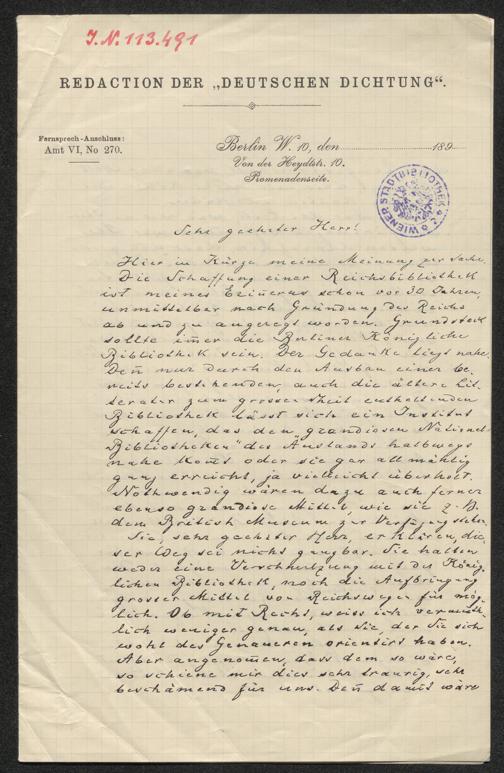 J.N. 113.491
REDACTION DER „DEUTSCHEN DICHTUNG“.
Fernsprech-Anschluss:
Amt VI, No 270.
Berlin W. 10, den 189
Von der Heydtstr. 10.
Promenadenseite.
WIENER STADTBIBLIOTHEK
Sehr geehrter Herr!
Hier in Kürze meine Meinung zur Sache.
Die Schaffung einer Reichsbibliothek
ist meines Erinnerns schon vor 30 Jahren,
unmittelbar nach Gründung des Reichs
ab und zu angeregt worden. Grundstock
sollte im̄er die Berliner Königliche
Bibliothek sein. Der Gedanke liegt nahe.
Den̄ nur durch den Ausbau einer be-
reits bestehenden, auch die ältere Lit-
teratur zum grossen Theil enthaltenden
Bibliothek lässt sich ein Institut
schaffen, das den „grandiosen National-
Bibliotheken“ des Auslands halbwegs
nahe kom̄t oder sie gar allmählig
ganz erreicht, ja vielleicht überholt.
Nothwendig wären dazu auch ferner
ebenso grandiose Mittel, wie sie z. B.
dem British Museum zur Verfügung stehen.
Sie, sehr geehrter Herr, erklären, die-
ser Weg sei nicht gangbar. Sie halten
weder eine Verschmelzung mit der König-
lichen Bibliothek, noch die Aufbringung
grosser Mittel von Reichswegen für mög-
lich. Ob mit Recht, weiss ich vermuth-
lich weniger genau, als Sie, der Sie sich
wohl des Genaueren orientirt haben.
Aber angenom̄en, dass dem so wäre,
so schiene mir dies sehr traurig, sehr
beschämend für uns. Den̄ damit wäre